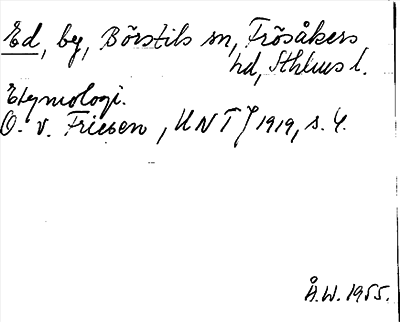 Ed, by, Börstils sn, Frösåkers
hd, Sthlms l.
Etymologi.
O. v. Friesen, UNT 1919, s. 4.
Å.W. 1955.